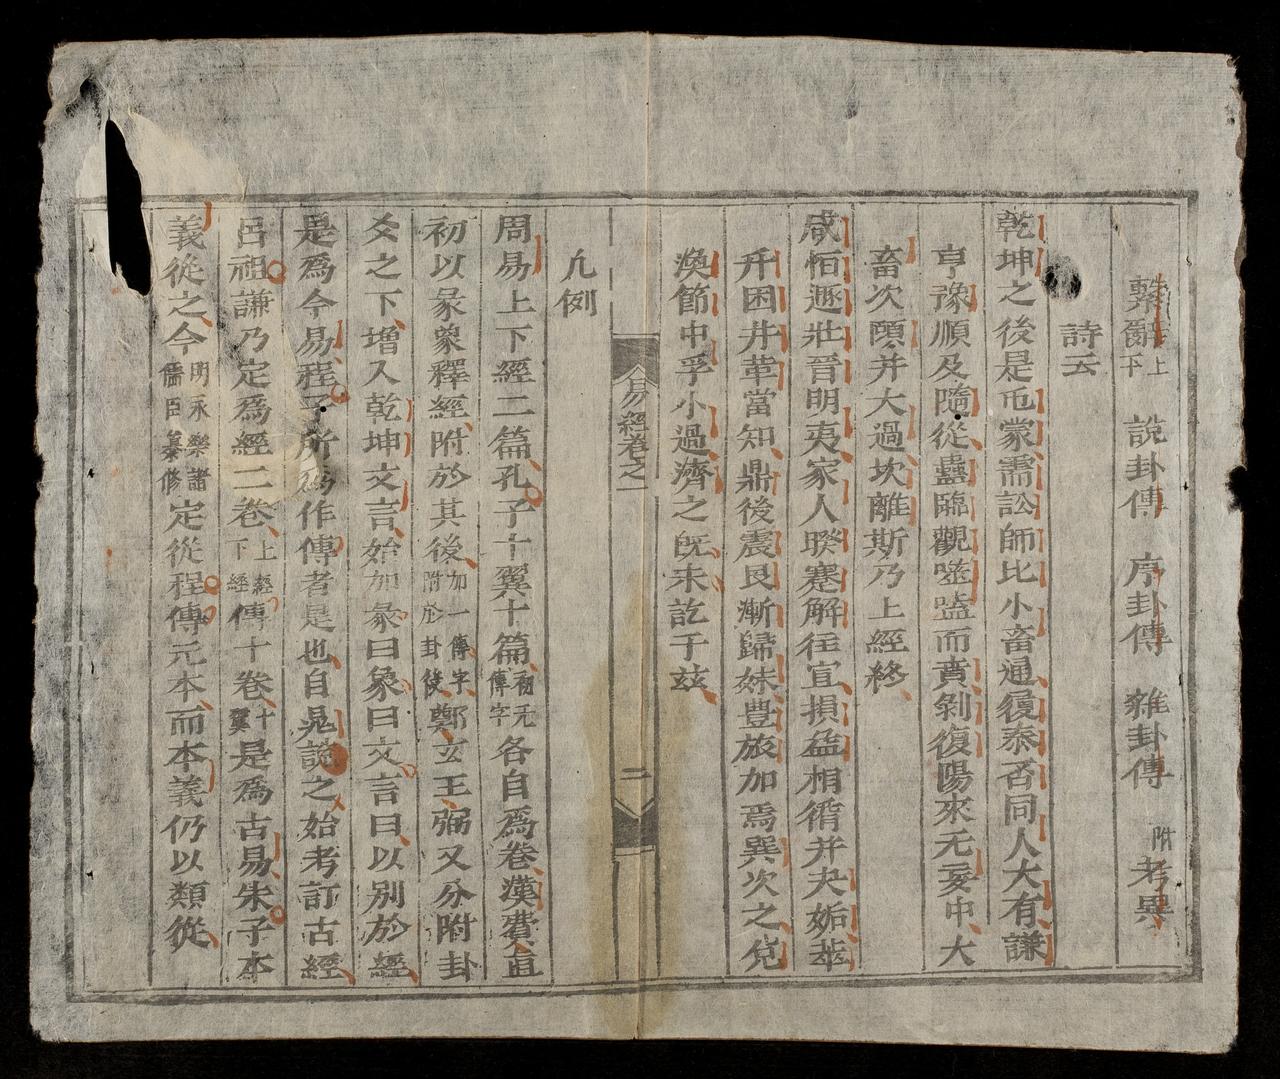 繫辭上下　說卦傳　序卦傳　雜卦傳　附考異
詩云
乾坤之後是屯蒙需訟師比小畜通履泰否同人大有謙
亨豫順及隨從蠱臨觀噬嗑而賁剝復陽來无妄中大
畜次頤并大過坎離斯乃上經終
咸恒遯壯晉明夷家人睽蹇解徃宜損益相循并夬姤萃
升困井革當知鼎後震艮漸歸妹豊旅加焉巽次之兌
渙節中孚小過濟之旣未訖于玆
易經卷之一
二
凡例
周易上下經二篇孔子十翼十篇初元傳字各自爲卷漢費直
初以彖象釋經附於其後加一傳字附於卦後鄭玄王弼又分附卦
爻之下增入乾坤文言始加彖曰象曰文言曰以別於經
是爲今易程子所爲作傳者是也自晁說之始考訂古經
呂祖謙乃定爲經二卷上經下經傳十卷十翼是爲古易朱子本
義從之今明永樂諸儒臣纂修定從程傳元本而本義仍以類從